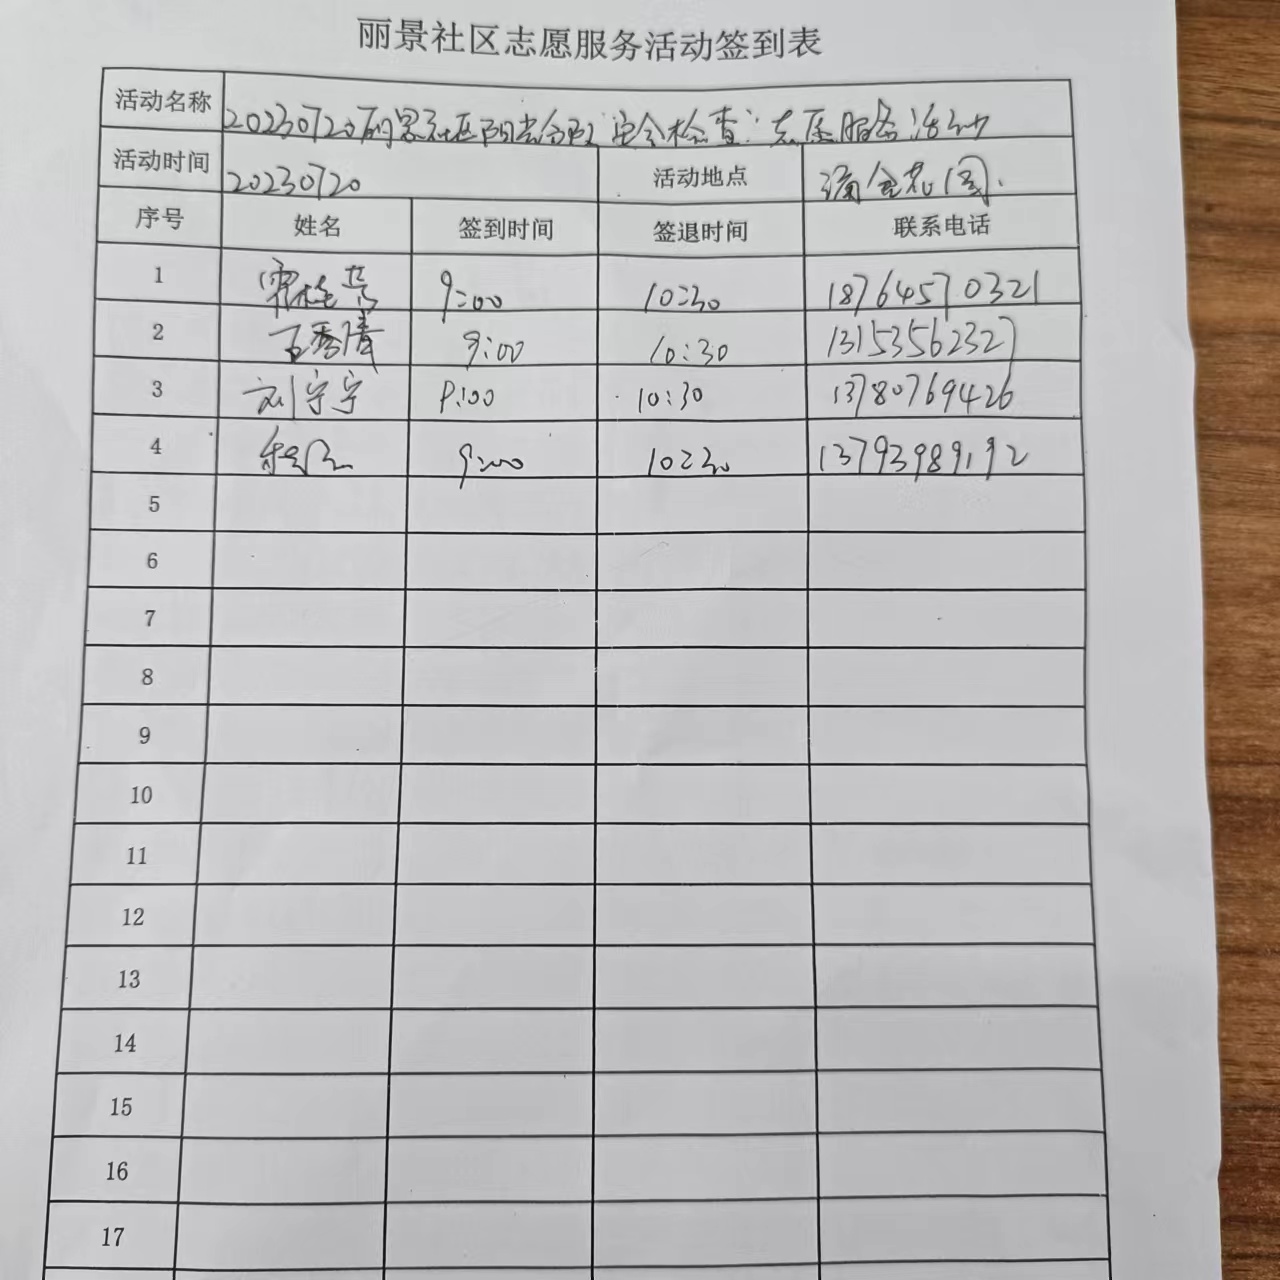 丽景社区志愿服务活动签到表
活动名称 20230720丽景社区阳光合院"安全检查"志愿服务活动
活动时间 20230720 活动地点 花园
序号 姓名 签到时间 签退时间 联系电话
1 9:00 10:30 18764570321
2 王秀清 9:00 10:30 13153562327
3 刘宁宁 9:00 10:30 13780769426
4 9:00 10:30 13793989192
5
6
7
8
9
10
11
12
13
14
15
16
17